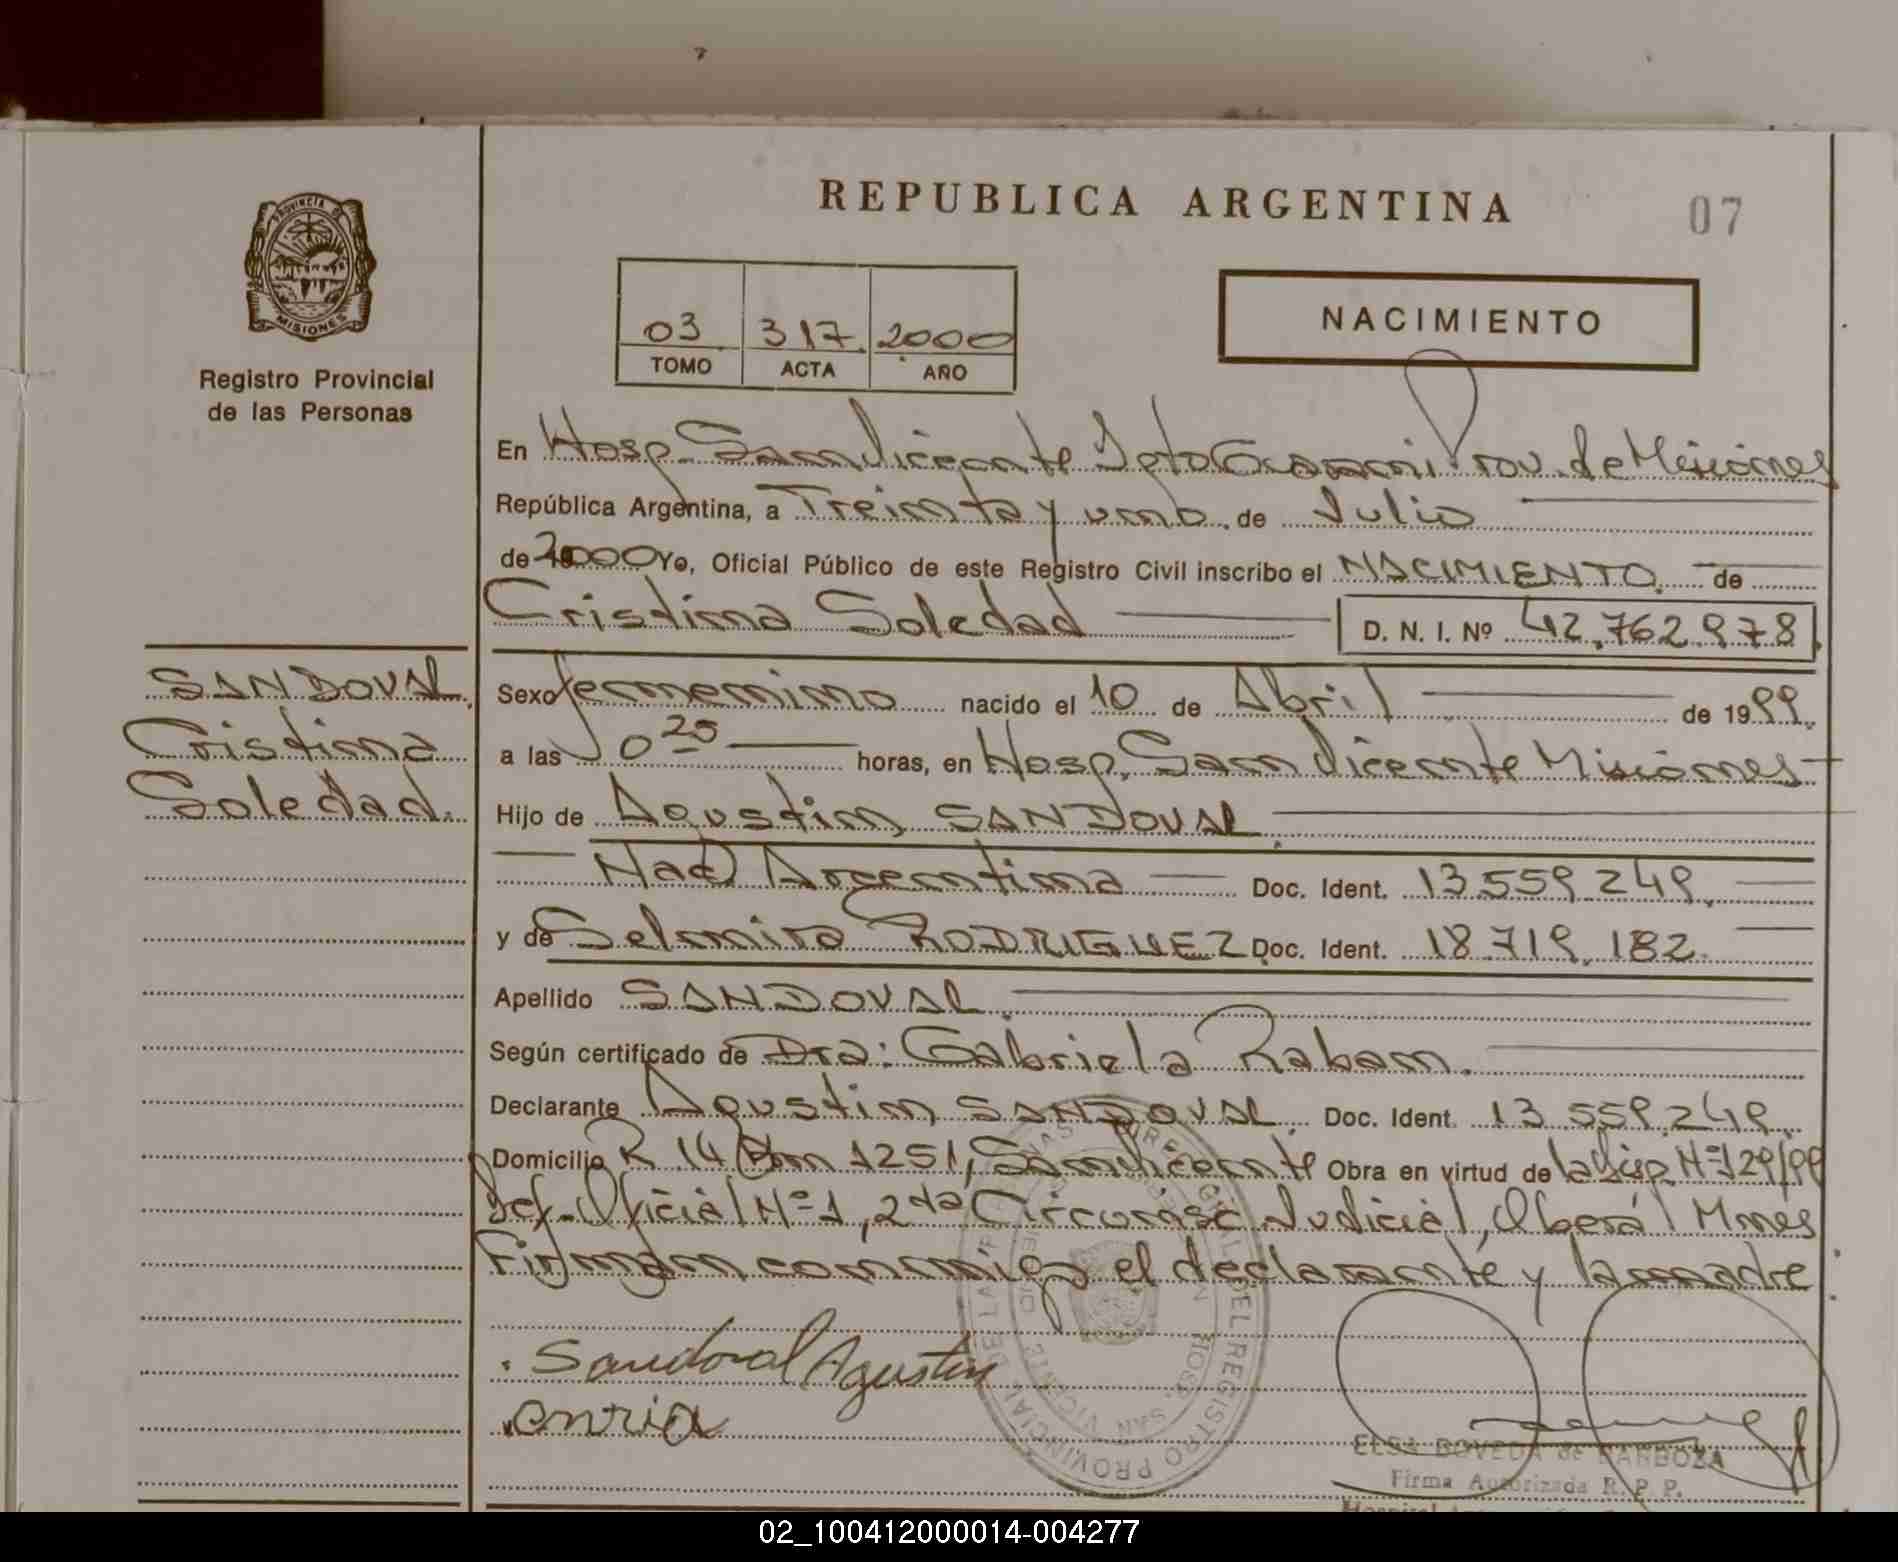 REPUBLICA ARGENTINA
07
PROVINCIA DE
MISIONES
Registro Provincial
de las Personas
03 317 2000
TOMO ACTA AÑO
NACIMIENTO
En Hosp. San Vicente Dpto Guarani Prov. de Misiones
República Argentina, a Treinta y uno de Julio
de 2000 Yo, Oficial Público de este Registro Civil inscribo el NACIMIENTO de
Cristina Soledad D. N. I. Nº 42.762.978
SANDOVAL
Cristina
Soledad.
Sexo femenino nacido el 10 de Abril de 1999
a las 0 25 horas, en Hosp. San Vicente Misiones
Hijo de Agustin SANDOVAL
Nac Argentina Doc. Ident. 13.559.249
y de Selmira RODRIGUEZ Doc. Ident. 18.719.182
Apellido SANDOVAL
Según certificado de Dra: Gabriela Raban.
Declarante Agustin SANDOVAL Doc. Ident. 13.559.249
Domicilio R 14 Km 1251, San Vicente Obra en virtud de la Disp. Nº 129/99
Def. Oficial Nº 1, 2da Circunsc Judicial, Oberá Mnes
Firman conmigo el declarante y la madre
Sandoval Agustin
REGISTRO PROVINCIAL DE LAS
HOSP. SAN VICENTE
ELSA BOVEDA de BARBOZA
Firma Autorizada R. P. P.
Hospital
02_100412000014-004277